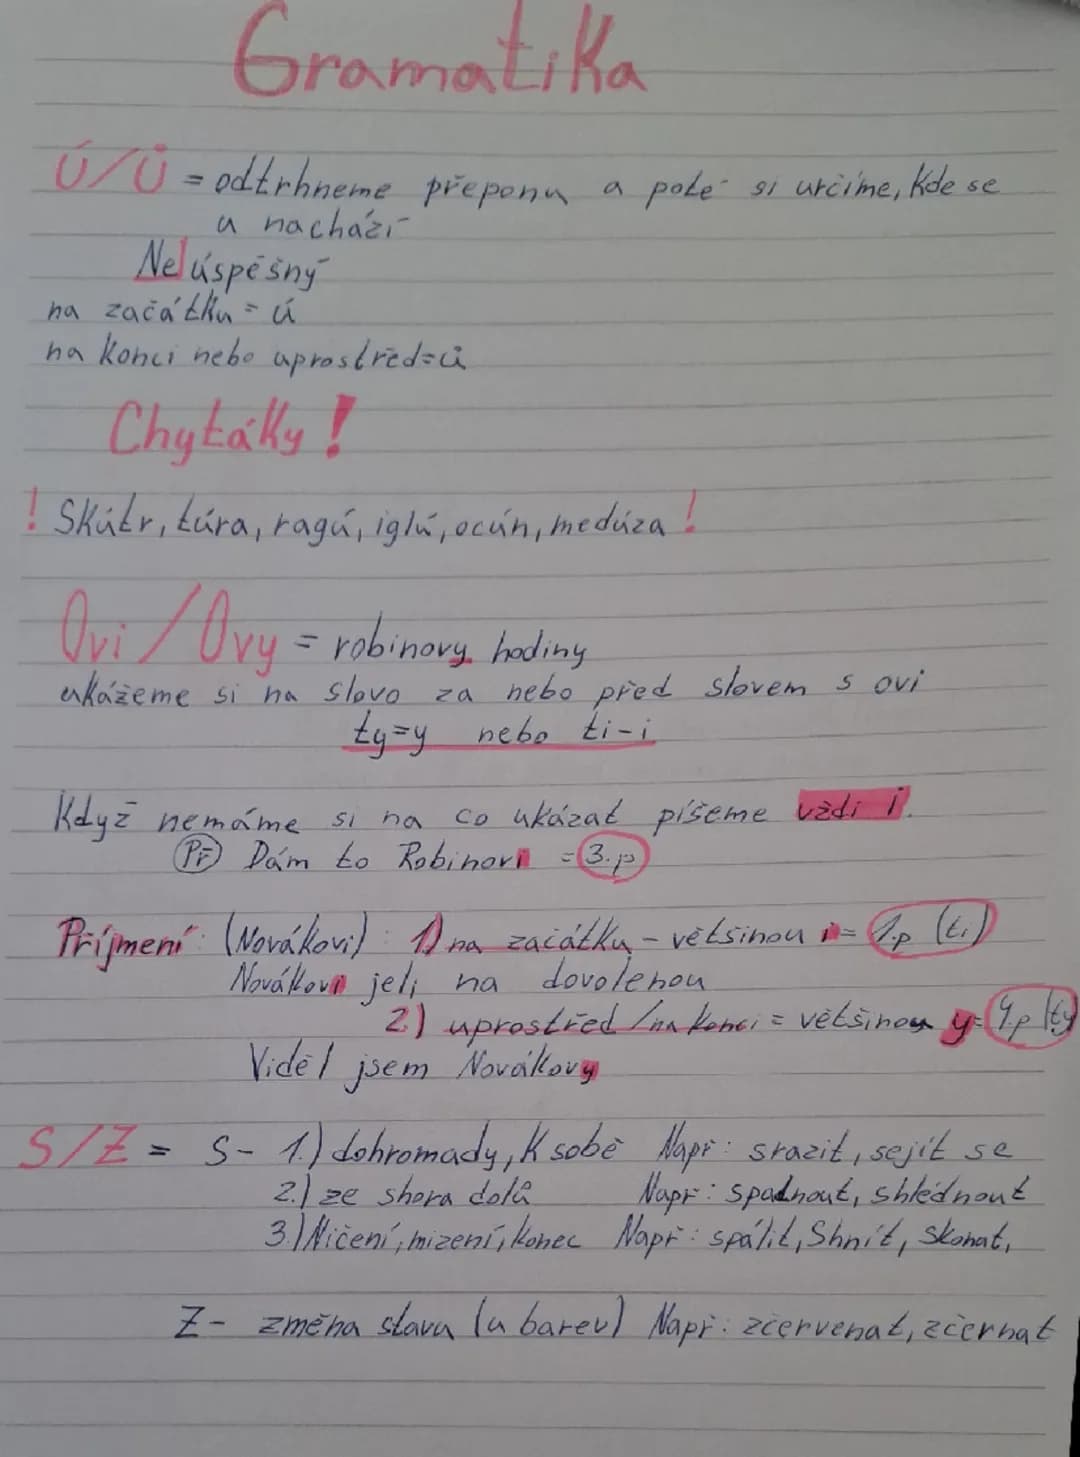 Gramatika
Ú/Ů = odtrhneme přeponu a poté si určíme, kde se
u nachází
Ne|úspěšný
na začátku = ú
na konci nebo uprostřed=ů
Chytáky!
! Skútr, túra, ragú, iglú, ocún, medúza !
Ovi/Ovy = robinovy hodiny
ukážeme si na slovo za nebo před slovem s ovi
ty=y nebo ti-i
Když nemáme si na co ukázat píšeme vždi i.
Př Dám to Robinovi = 3.p
Příjmení: (Novákovi): 1) na začátku - většinou i = 1.p (ti)
Novákovi jeli na dovolenou
2.) uprostřed/na konci = většinou y = 4.p (ty
Viděl jsem Novákovy
S/Z = S- 1.) dohromady, k sobě Např: srazit, sejít se
2.) ze shora dolů Např: spadnout, shlédnout
3.) Ničení, mizení, konec Např: spálit, Shnít, skonat,
Z- změna stavu (u barev) Např: zčervenat, zčernat